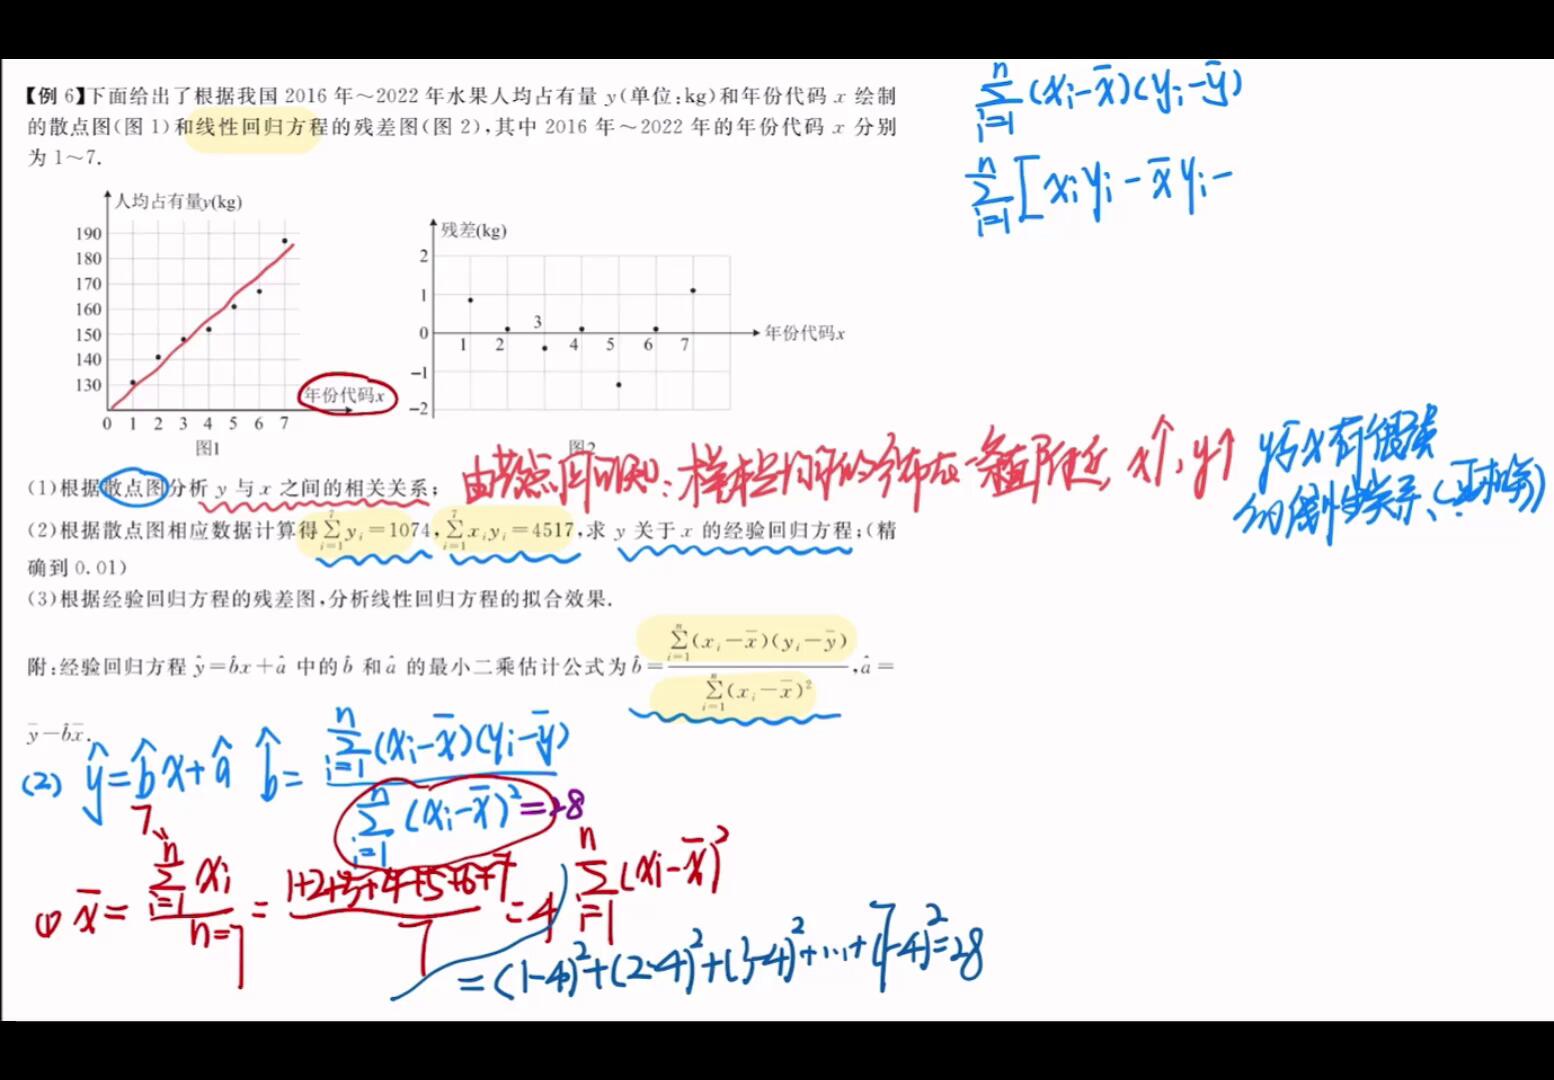 【例 6】下面给出了根据我国 2016 年～2022 年水果人均占有量 y(单位:kg)和年份代码 x 绘制
的散点图(图 1)和线性回归方程的残差图(图 2),其中 2016 年～2022 年的年份代码 x 分别
为 1～7.
人均占有量y(kg)
190
180
170
160
150
140
130
0 1 2 3 4 5 6 7
年份代码x
图1
残差(kg)
2
1
0
-1
-2
1 2 3 4 5 6 7
年份代码x
图2
(1)根据散点图分析 y 与 x 之间的相关关系;
(2)根据散点图相应数据计算得 \sum_{i=1}^{7} y_i=1074, \sum_{i=1}^{7} x_i y_i=4517,求 y 关于 x 的经验回归方程;(精
确到 0.01)
(3)根据经验回归方程的残差图,分析线性回归方程的拟合效果.
附:经验回归方程 ŷ=b̂x+â 中的 b̂ 和 â 的最小二乘估计公式为 b̂=\frac{\sum_{i=1}^{n}(x_i-x̄)(y_i-ȳ)}{\sum_{i=1}^{n}(x_i-x̄)^2},â=
ȳ-b̂x̄.
\sum_{i=1}^{n}(x_i-x̄)(y_i-ȳ)
\sum_{i=1}^{n}[x_iy_i-x̄y_i-
由散点图可知:样本点均匀的分布在一条直线附近, x↑, y↑
y与x有很强
的线性关系、(正相关)
(2) ŷ=b̂x+â b̂=\frac{\sum_{i=1}^{n}(x_i-x̄)(y_i-ȳ)}{\sum_{i=1}^{n}(x_i-x̄)^2=28}
① x̄=\frac{\sum_{i=1}^{n 7}x_i}{n=7}=\frac{1+2+3+4+5+6+7}{7}=4
\sum_{i=1}^{n}(x_i-x̄)^2
=(1-4)^2+(2-4)^2+(3-4)^2+…+(7-4)^2=28